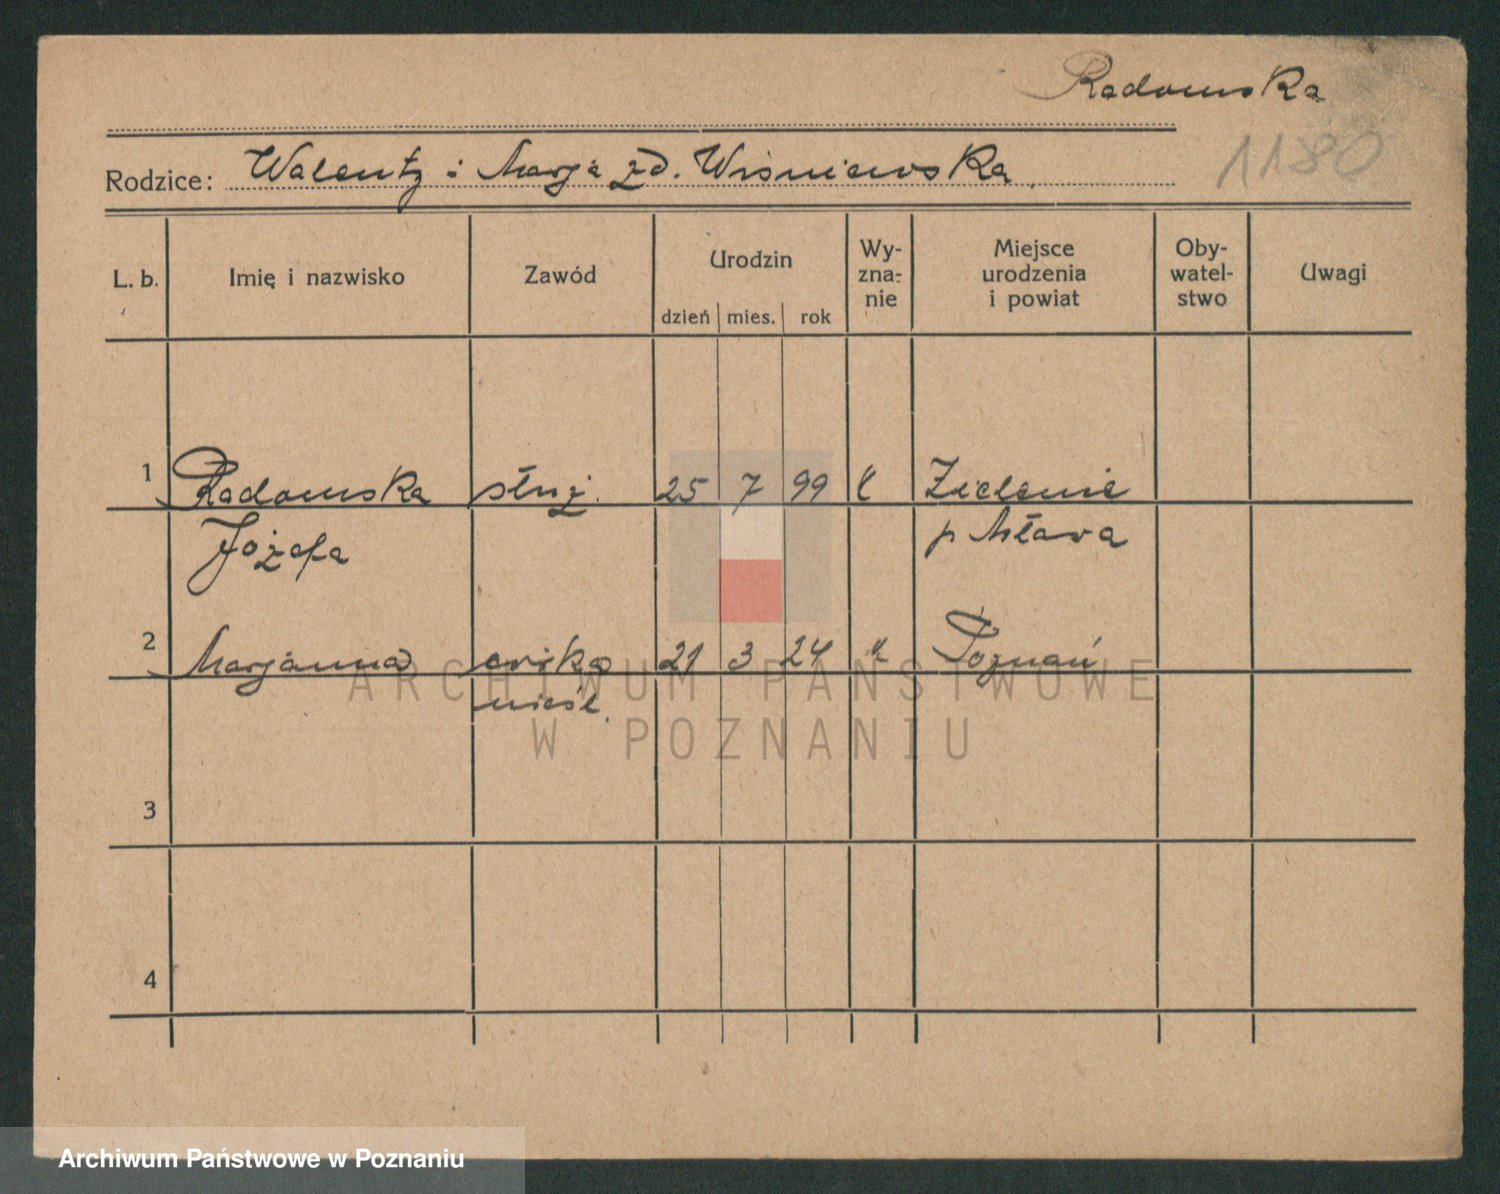 Radomska
11380
Rodzice: Walenty i Marja zd. Wiśniewska
L. b.
Imię i nazwisko
Zawód
Urodzin
dzień mies. rok
Wy-
zna-
nie
Miejsce
urodzenia
i powiat
Oby-
watel-
stwo
Uwagi
1 Radomska służ. 25 7 99 k Zielenie
Józefa p Mława
2 Marjanna córka 21 3 24 " Poznań
nieśl.
3
4
ARCHIWUM PAŃSTWOWE
W POZNANIU
Archiwum Państwowe w Poznaniu